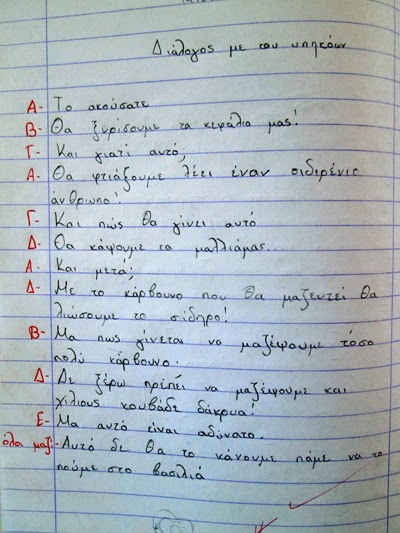 Διάλογος με του υπηκόων
Α- Το ακούσατε
Β- Θα ξυρίσουμε τα κεφάλια μας!
Γ- Και γιατί αυτό;
Α- Θα φτιάξουμε λέει έναν σιδερένιο
άνθρωπο!
Γ- Και πώς θα γίνει αυτό
Δ- Θα κάψουμε τα μαλλιάμας...
Α- Και μετά;
Δ- Με το κάρβουνο που θα μαζευτεί θα
λιώσουμε το σίδηρο!
Β- Μα πως γίνεται να μαζέψουμε τόσο
πολύ κάρβουνο.
Δ- Δε ξέρω... πρέπει να μαζέψουμε και
χίλιους κουβάδε δάκρυα!
Ε- Μα αυτό είναι αδύνατο.
όλοι μαζί-Αυτό δε θα το κάνουμε πάμε να το
πούμε στο βασιλιά